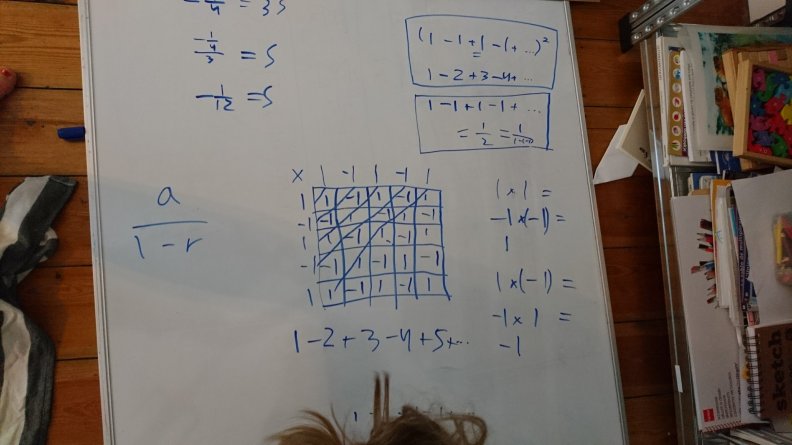 -1/4 = 3S
-1/4/3 = S
-1/12 = S
(1-1+1-1+...)²
=
1-2+3-4+...
1-1+1-1+...
= 1/2 = 1/1-(-1)
a
1-r
× 1 -1 1 -1 1
1 1 -1 1 -1 1
-1 -1 1 -1 1 -1
1 1 -1 1 -1 1
-1 -1 1 -1 1 -1
1 1 -1 1 -1 1
1-2+3-4+5+...
1×1=
-1×(-1)=
1
1×(-1)=
-1×1=
-1
sketch